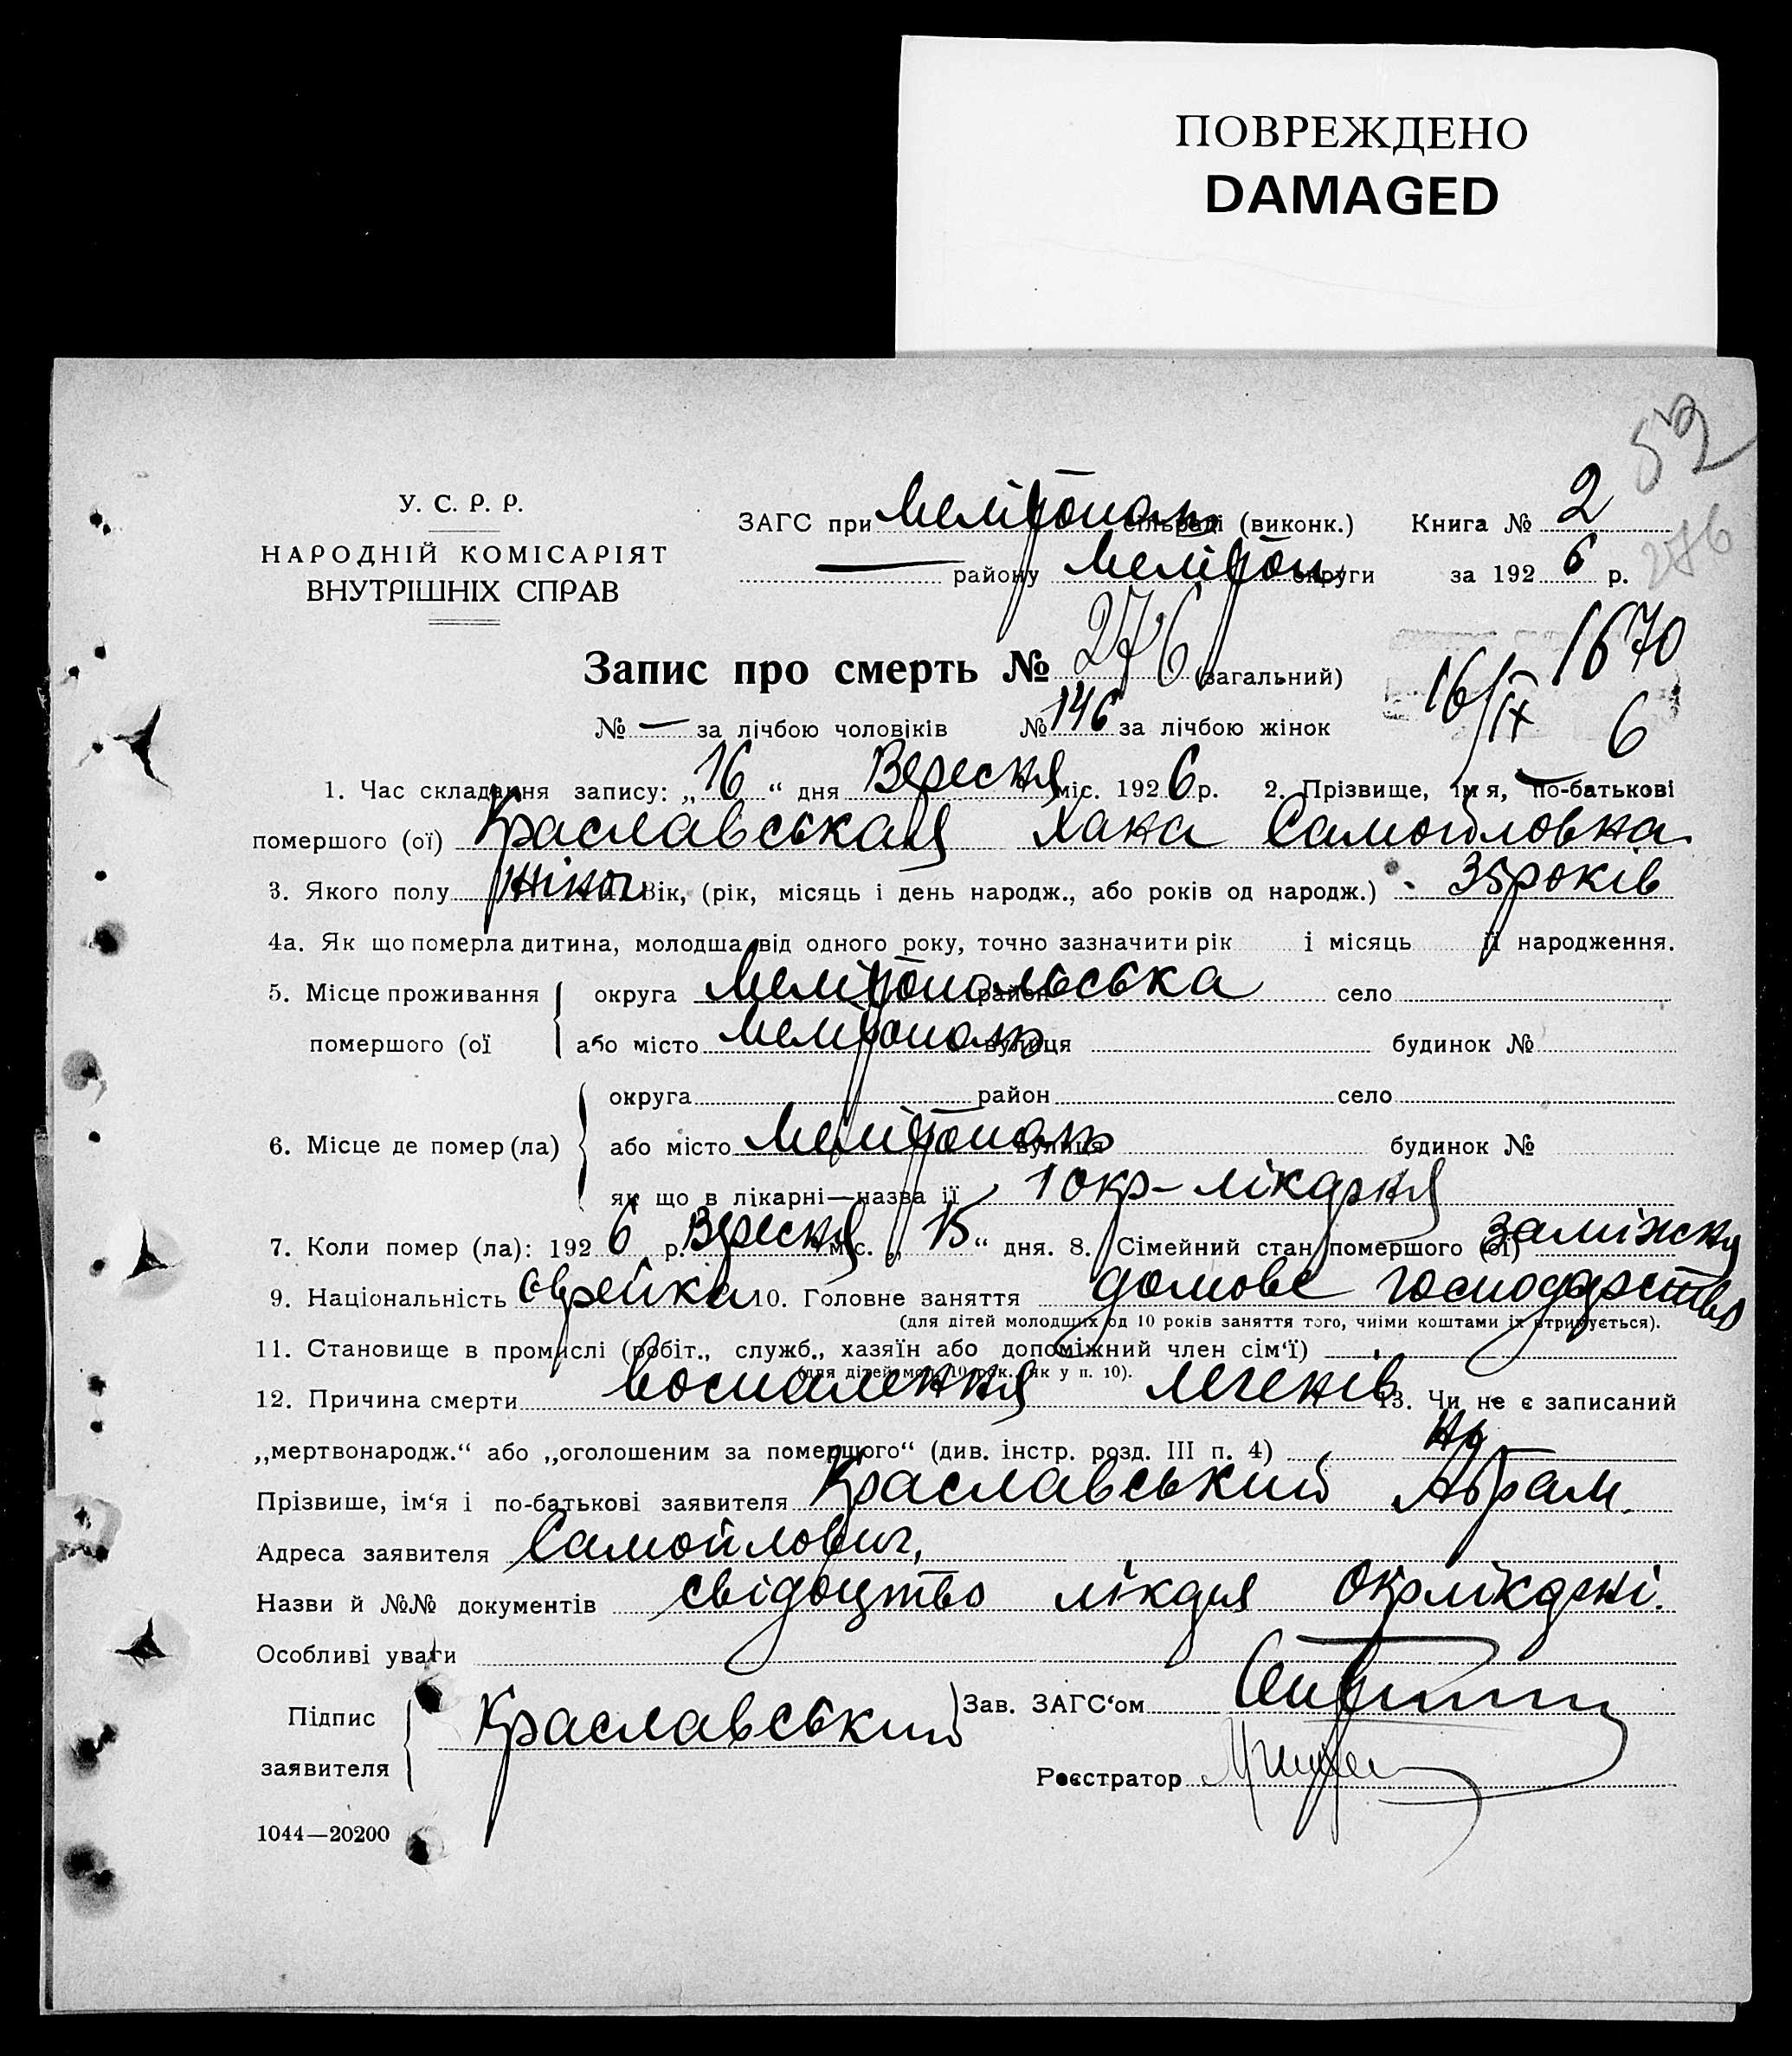 ПОВРЕЖДЕНО
DAMAGED
52
У. С. Р. Р.
НАРОДНІЙ КОМІСАРІЯТ
ВНУТРІШНІХ СПРАВ
ЗАГС при Мелітополь сільраді (виконк.) Книга № 2
— району Мелітоп округи за 1926 р.
276
Запис про смерть № 276 (загальний)
1670
16/IX 6
№ — за лічбою чоловіків № 146 за лічбою жінок
1. Час складання запису: „16“ дня Вересня міс. 1926 р. 2. Прізвище, ім я, по-батькові
помершого (ої) Краславськая Хана Самойловна
3. Якого полу Жіноч 4. Вік, (рік, місяць і день народж., або років од народж.) 35 років
4а. Як що померла дитина, молодша від одного року, точно зазначити рік і місяць її народження.
5. Місце проживання округа Мелітопольська район село
помершого (ої або місто Мелітополь вулиця будинок №
округа район село
6. Місце де помер (ла) або місто Мелітополь вулиця будинок №
як що в лікарні—назва її 1 окр-лікарня
7. Коли помер (ла): 1926 р. Вересня міс. „15“ дня. 8. Сімейний стан помершого (ої) заміжня
9. Національність Єврейка 10. Головне заняття домове господарство
(для дітей молодших од 10 років заняття того, чиїми коштами їх втримується).
11. Становище в промислі (робіт., служб., хазяїн або допоміжний член сім‘ї)
(для дітей мол. 10 рок. як у п. 10).
12. Причина смерти воспалення легенів 13. Чи не є записаний
„мертвонародж.“ або „оголошеним за помершого“ (див. інстр. розд. III п. 4) Ні
Прізвише, ім‘я і по-батькові заявителя Краславський Абрам
Адреса заявителя Самойлович,
Назви й №№ документів свідоцтво лікаря Окрлікарні.
Особливі уваги
Підпис заявителя Краславський Зав. ЗАГС‘ом
Реєстратор
1044—20200